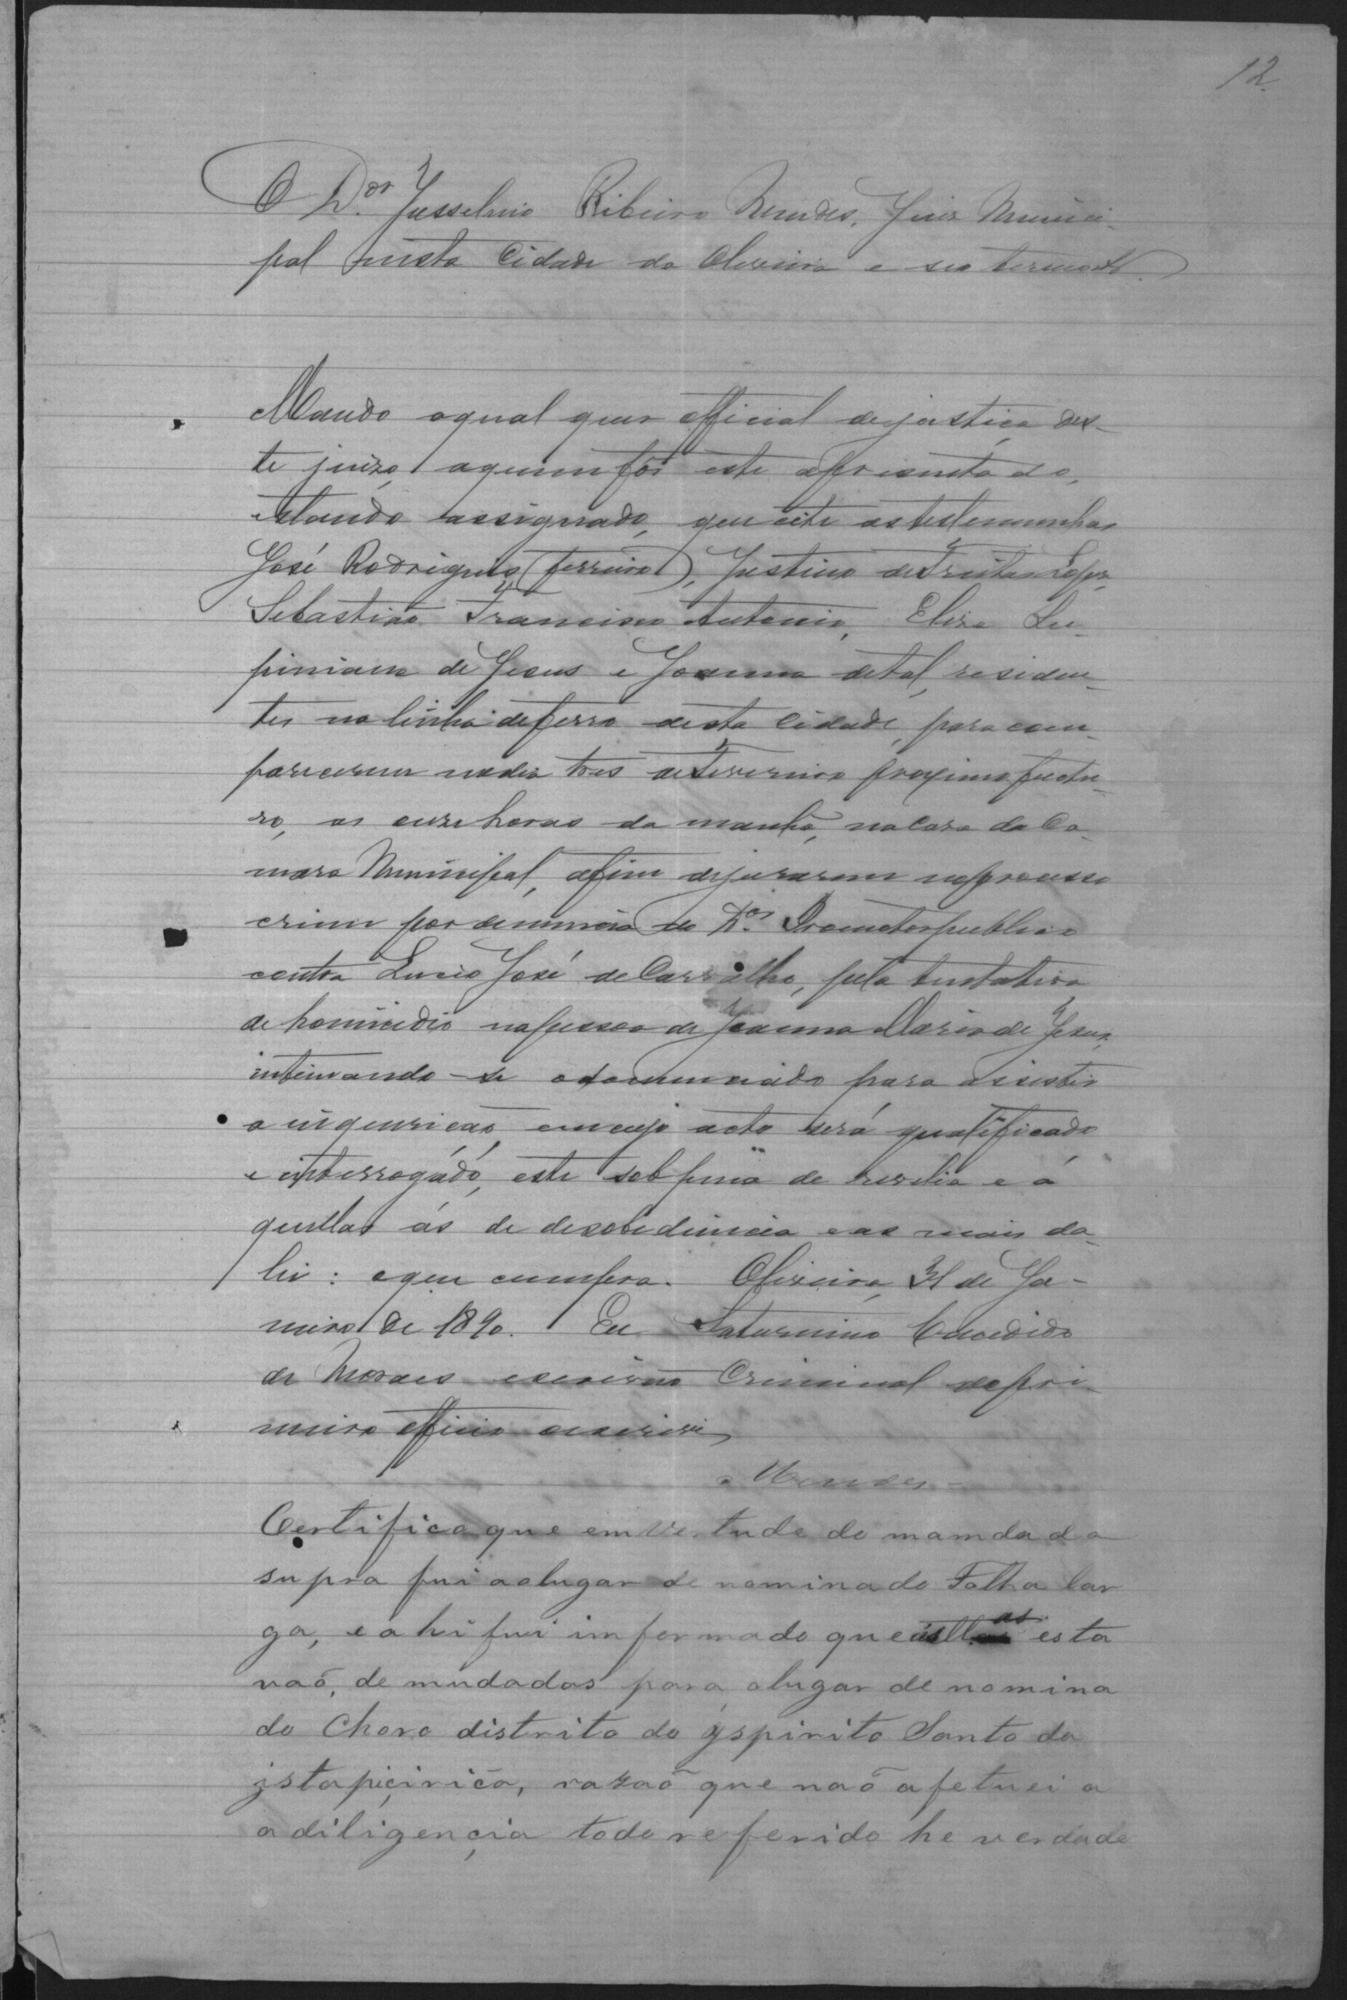 12
O D.or Jusselino Ribeiro Mendes, Juiz Munici-
pal nesta Cidade da Oliveira e seu termo &.
Mando a qual quer official de justiça des-
te juizo, a quem fôr este apresentado,
estando assignado, que cite as testemunhas
José Rodrigues (ferreiro), Justino de Freitas Lopes,
Sebastião Francisco Antonio, Elisa Lu-
piniana de Jesus e Joanna de tal, residen-
tes na linha de ferro desta Cidade, para com-
parecerem no dia tres de Fevereiro proximo futu-
ro, as onze horas da manhã, na Casa da Ca-
mara Municipal, afim de jurarem no processo
crime por denuncia do D.or Promotor publico
contra Lucio José de Carvalho, pela tentativa
de homicidio na pessoa de Joanna Maria de Jesus,
intimando-se o denunciado para assistir
a inquirição, em cujo acto será qualificado
e interrogádo, este sob pena de revelia e á
quellas ás de desobediencia e as mais da
lei: o que cumpra. Oliveira, 31 de Ja-
neiro de 1890. Eu Saturnino Candido
de Moraes escrivão Criminal do pri-
meiro officio escrevi
Mendes
Certifico que em vertude do mamdado
supra fui ao lugar de nominado Folha lar
ga, e ahi fui imformado que as esta
vaõ, de mudadas para olugar de nomina
do Choro distrito do yspirito Santo da
jstapiçirica, razaõ que naõ afetuei a
a diligençia todo referido he verdade